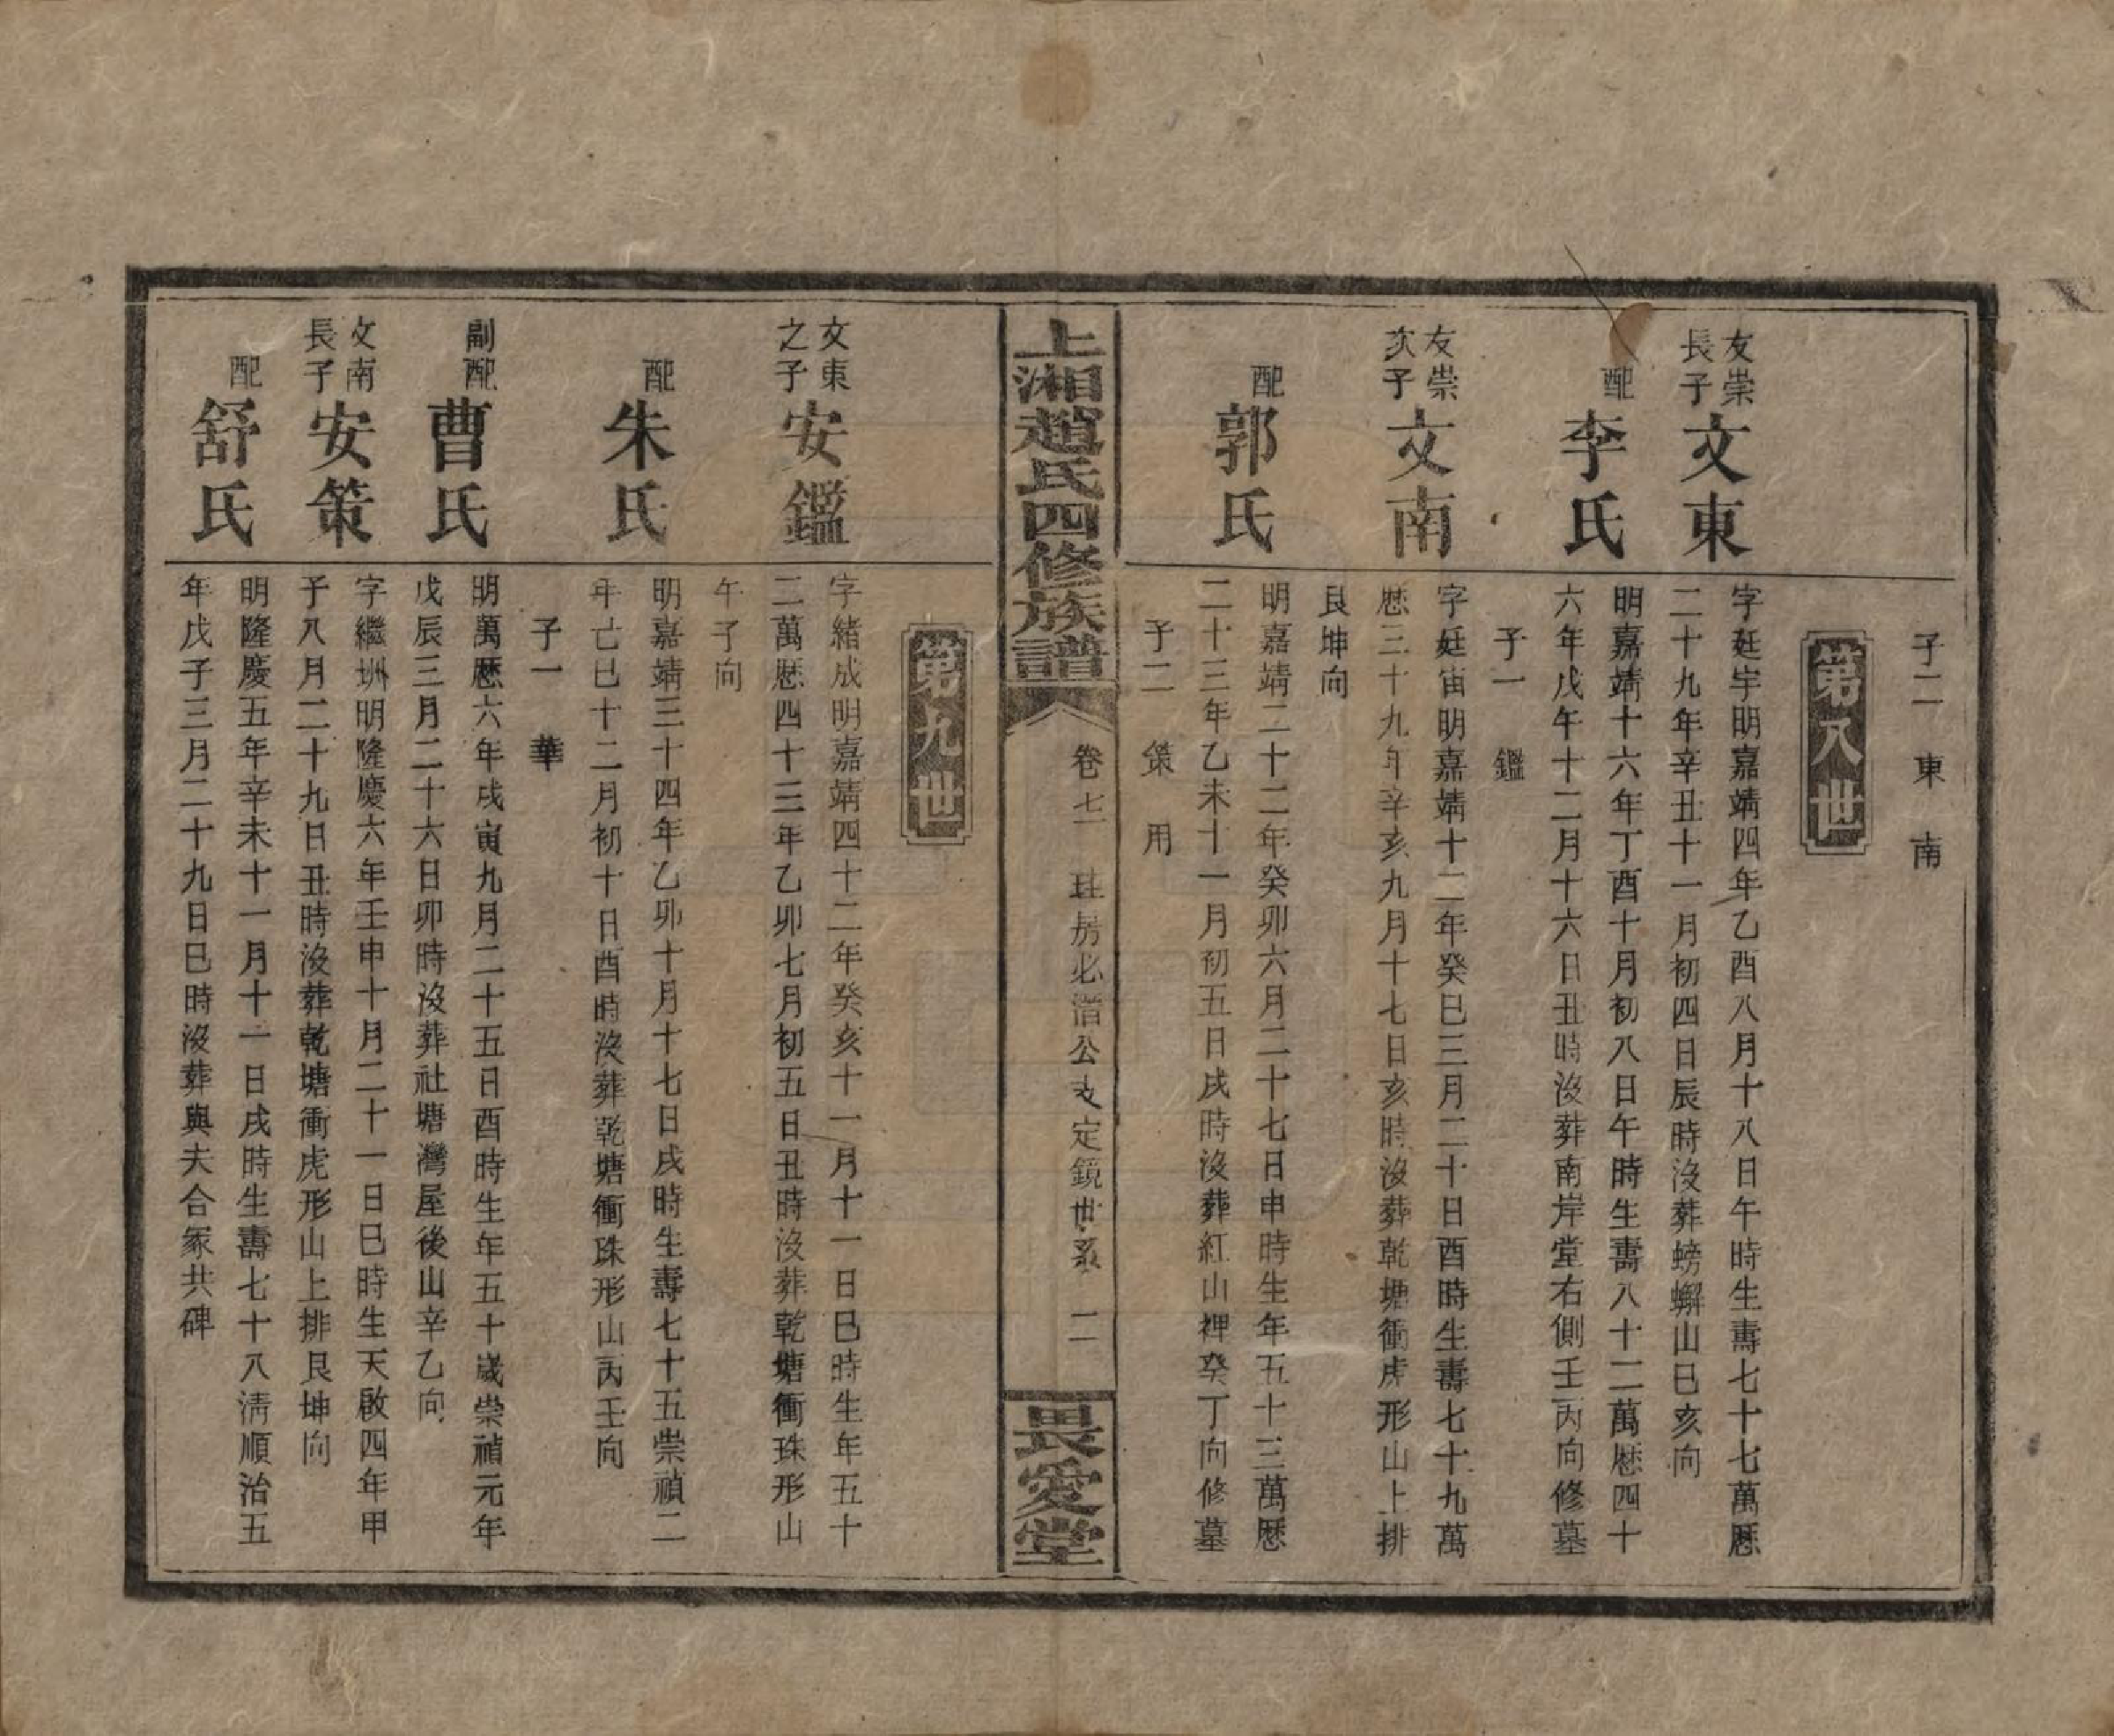 子二　東　南
第八世
友崇
長子
文東
字廷宇明嘉靖四年乙酉八月十八日午時生壽七十七萬厯
二十九年辛丑十一月初四日辰時沒葬螃蠏山巳亥向
配
李氏
明嘉靖十六年丁酉十月初八日午時生壽八十二萬厯四十
六年戊午十二月十六日丑時沒葬南岸堂右側壬丙向修墓
子一　鑑
友崇
次子
文南
字廷宙明嘉靖十二年癸巳三月二十日酉時生壽七十九萬
厯三十九年辛亥九月十七日亥時沒葬乾塘衝虎形山上排
艮坤向
配
郭氏
明嘉靖二十二年癸卯六月二十七日申時生年五十三萬厯
二十三年乙未十一月初五日戌時沒葬紅山裡癸丁向修墓
子二　策　用
上湘趙氏四修族譜
卷七　珪房必潛公支定鏡世系　二
畏愛堂
第九世
文東
之子
安鑑
字緒成明嘉靖四十二年癸亥十一月十一日巳時生年五十
二萬厯四十三年乙卯七月初五日丑時沒葬乾塘衝珠形山
午子向
配
朱氏
明嘉靖三十四年乙卯十月十七日戌時生壽七十五崇禎二
年己巳十二月初十日酉時沒葬乾塘衝珠形山丙壬向
子一　華
副配
曹氏
明萬厯六年戊寅九月二十五日酉時生年五十歲崇禎元年
戊辰三月二十六日卯時沒葬社塘灣屋後山辛乙向
文南
長子
安策
字繼圳明隆慶六年壬申十月二十一日巳時生天啟四年甲
子八月二十九日丑時沒葬乾塘衝虎形山上排艮坤向
配
舒氏
明隆慶五年辛未十一月十一日戌時生壽七十八淸順治五
年戊子三月二十九日巳時沒葬與夫合冢共碑